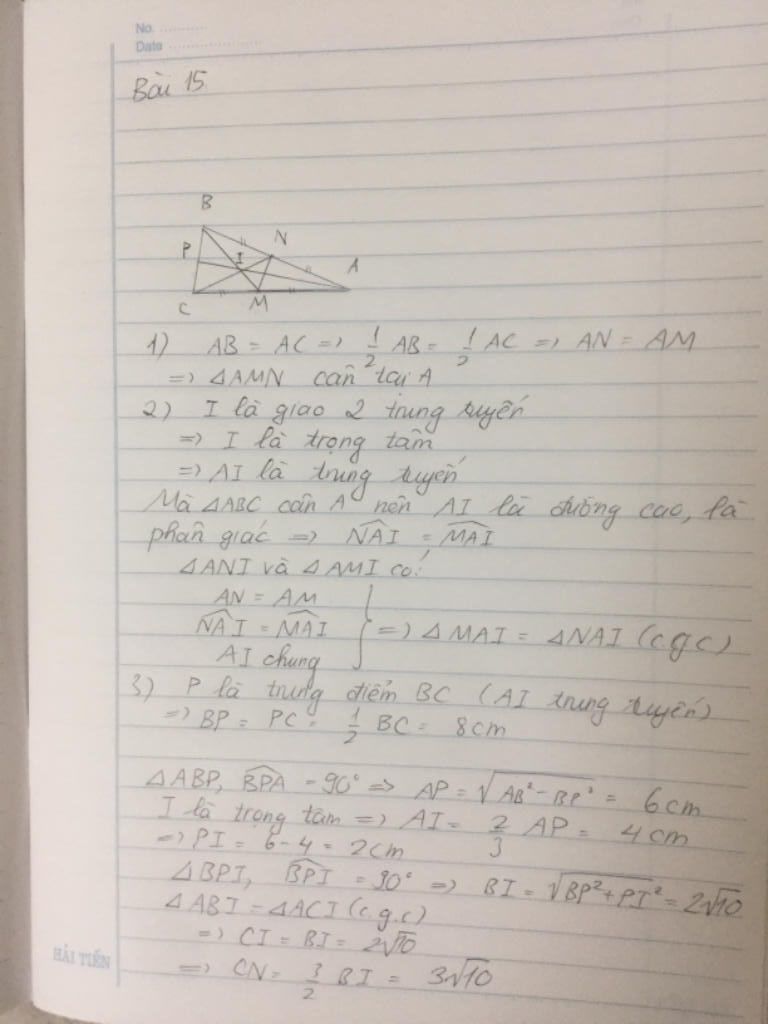 No. ..........
Date ....................
Bài 15
B
N
P
I
A
C
M
1) AB = AC => 1/2 AB = 1/2 AC => AN = AM
=> ΔAMN cân tại A
2) I là giao 2 trung tuyến
=> I là trọng tâm
=> AI là trung tuyến
Mà ΔABC cân A nên AI là đường cao, là
phân giác => \widehat{NAI} = \widehat{MAI}
ΔANI và ΔAMI có:
AN = AM
\widehat{NAI} = \widehat{MAI} } => ΔMAI = ΔNAI (c.g.c)
AI chung
3) P là trung điểm BC (AI trung tuyến)
=> BP = PC = 1/2 BC = 8cm
ΔABP, \widehat{BPA} = 90° => AP = √(AB² - BP²) = 6cm
I là trọng tâm => AI = 2/3 AP = 4cm
=> PI = 6 - 4 = 2cm
ΔBPI, \widehat{BPI} = 90° => BI = √(BP² + PI²) = 2√10
ΔABI = ΔACI (c.g.c)
=> CI = BI = 2√10
=> CN = 3/2 BI = 3√10
HẢI TIẾN